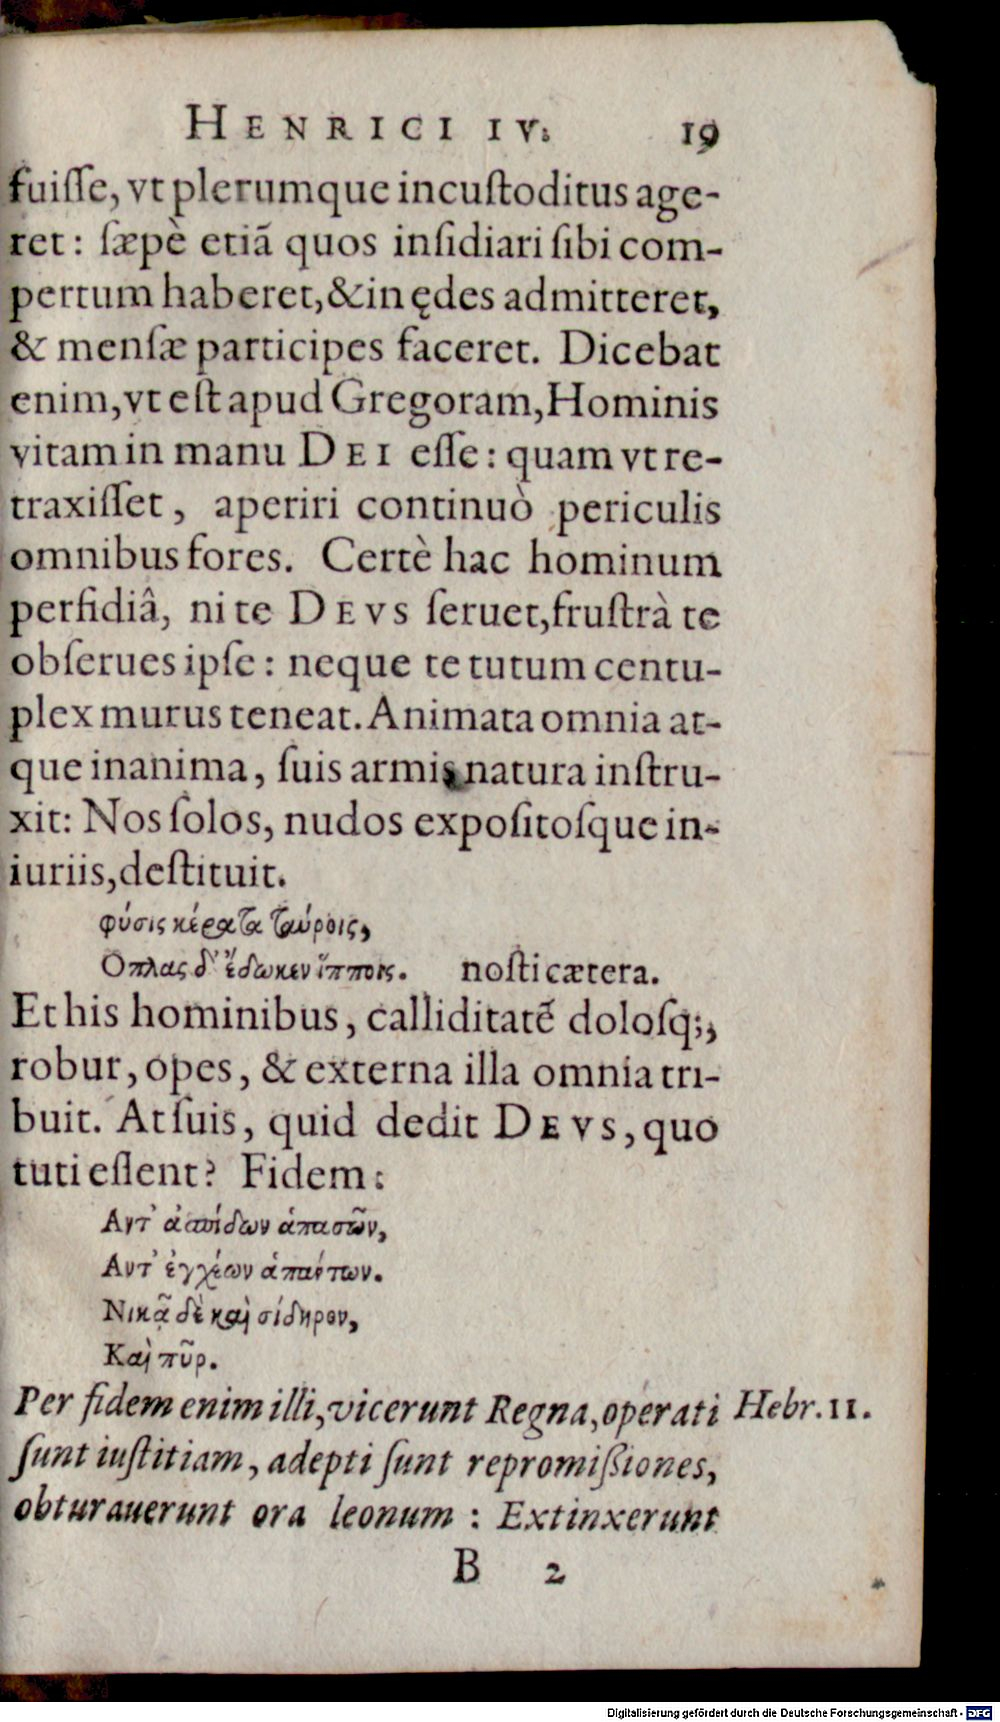 HENRICI IV. 19
fuiſſe, vt plerumque incuſtoditus age-
ret: ſæpè etiã quos inſidiari ſibi com-
pertum haberet, & in ędes admitteret,
& menſæ participes faceret. Dicebat
enim, vt eſt apud Gregoram, Hominis
vitam in manu DEI eſſe: quam vt re-
traxiſſet, aperiri continuò periculis
omnibus fores. Certè hac hominum
perfidiâ, ni te DEVS ſeruet, fruſtrà te
obſerues ipſe: neque te tutum centu-
plex murus teneat. Animata omnia at-
que inanima, ſuis armis natura inſtru-
xit: Nos ſolos, nudos expoſitoſque in-
iuriis, deſtituit.
φύσις κέρατα ταύροις,
Οπλας δ' ἔδωκεν ἵπποις. noſti cætera.
Et his hominibus, calliditatẽ doloſq;,
robur, opes, & externa illa omnia tri-
buit. At ſuis, quid dedit DEVS, quo
tuti eſſent? Fidem:
Αντ' ἀσπίδων ἁπασῶν,
Αντ' ἐγχέων ἁπάντων.
Νικᾷ δὲ καὶ σίδηρον,
Καὶ πῦρ.
Per fidem enim illi, vicerunt Regna, operati Hebr. 11.
ſunt iuſtitiam, adepti ſunt repromiſsiones,
obturauerunt ora leonum: Extinxerunt
B 2
Digitalisierung gefördert durch die Deutsche Forschungsgemeinschaft - DFG